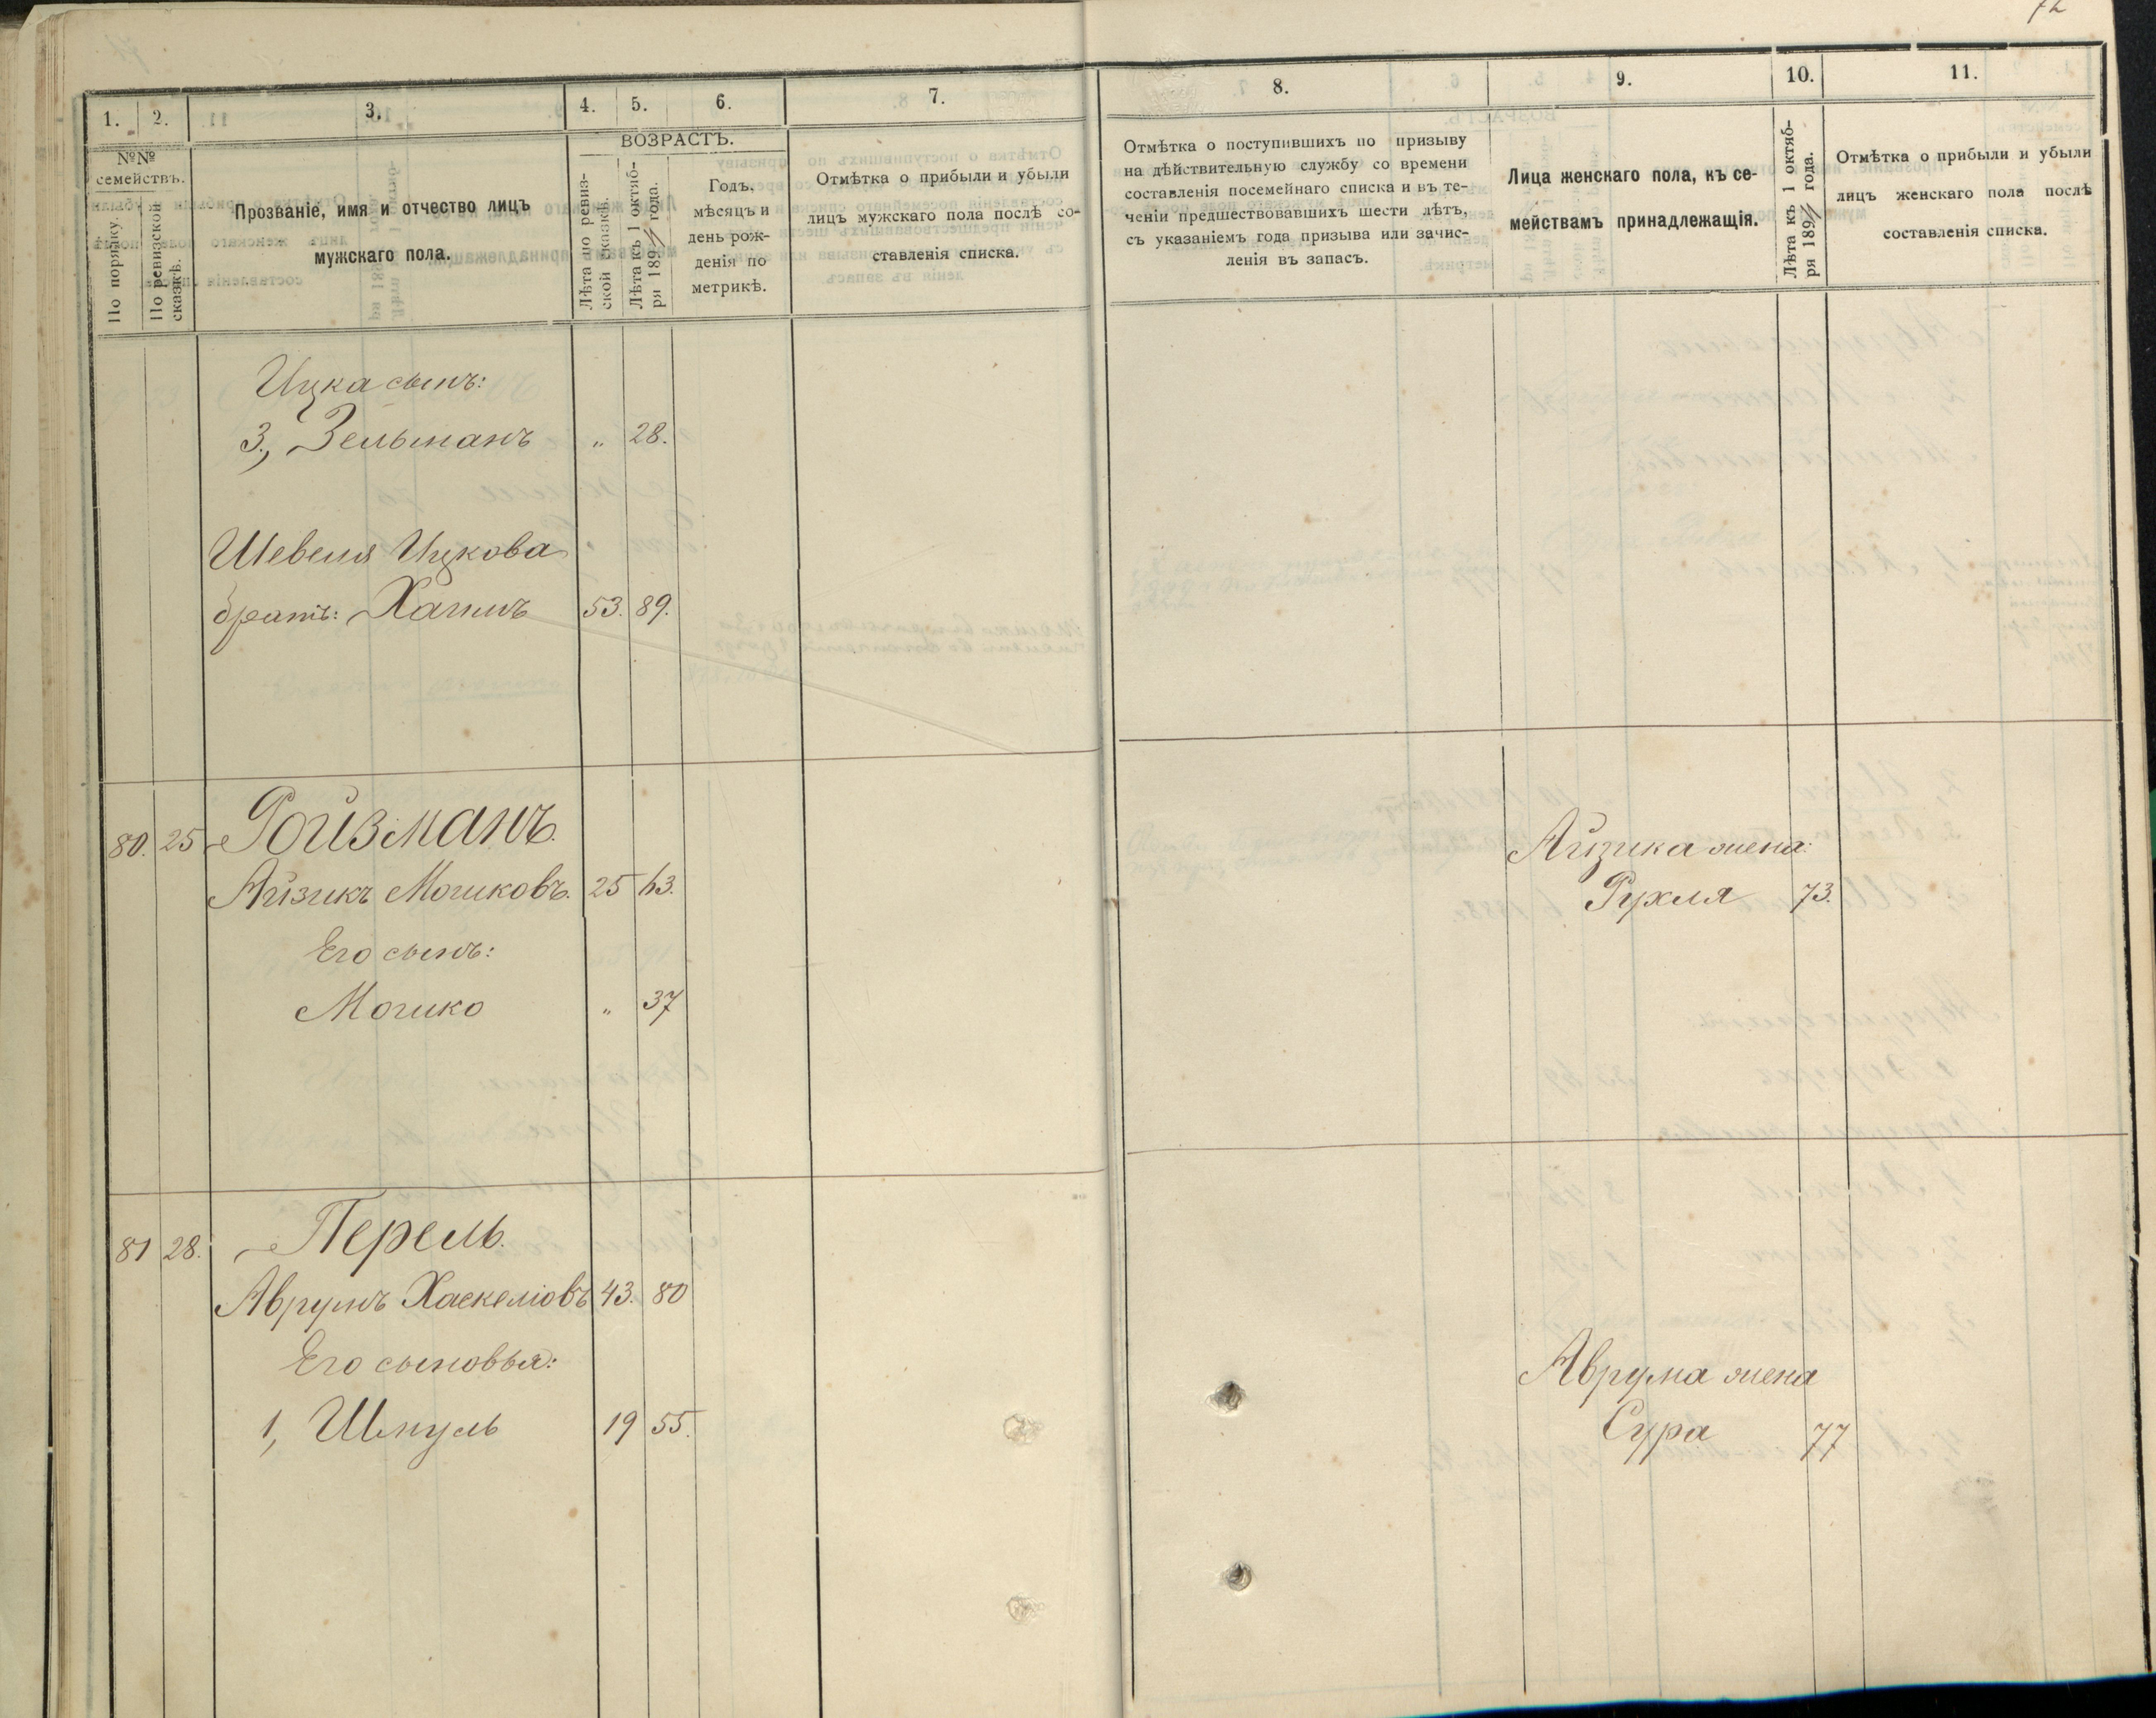 72
1. 2. 3. 4. 5. 6. 7.
№№ семействъ.
По порядку.
По ревизской сказкѣ.
Прозваніе, имя и отчество лицъ
мужскаго пола.
ВОЗРАСТЪ.
Лѣта по ревиз-
ской сказкѣ.
Лѣта къ 1 октяб-
ря 189 года.
Годъ,
мѣсяцъ и
день рож-
денія по
метрикѣ.
Отмѣтка о прибыли и убыли
лицъ мужскаго пола послѣ со-
ставленія списка.
Ицка сынъ:
3, Зельманъ " 28.
Шевеля Ицкова
братъ: Хаимъ 53. 89.
80. 25 Ройзманъ.
Айзикъ Мошковъ. 25 63.
Его сынъ:
Мошко " 37
81 28. Перель.
Аврумъ Хаскеліовъ 43. 80
Его сыновья:
1, Шмуль 19 55.
8. 9. 10. 11.
Отмѣтка о поступившихъ по призыву
на дѣйствительную службу со времени
составленія посемейнаго списка и въ те-
ченіи предшествовавшихъ шести лѣтъ,
съ указаніемъ года призыва или зачис-
ленія въ запасъ.
Лица женскаго пола, къ се-
мействамъ принадлежащія.
Лѣта къ 1 октяб-
ря 189 года.
Отмѣтка о прибыли и убыли
лицъ женскаго пола послѣ
составленія списка.
Айзика жена:
Рухля 73.
Аврума жена
Сура 77